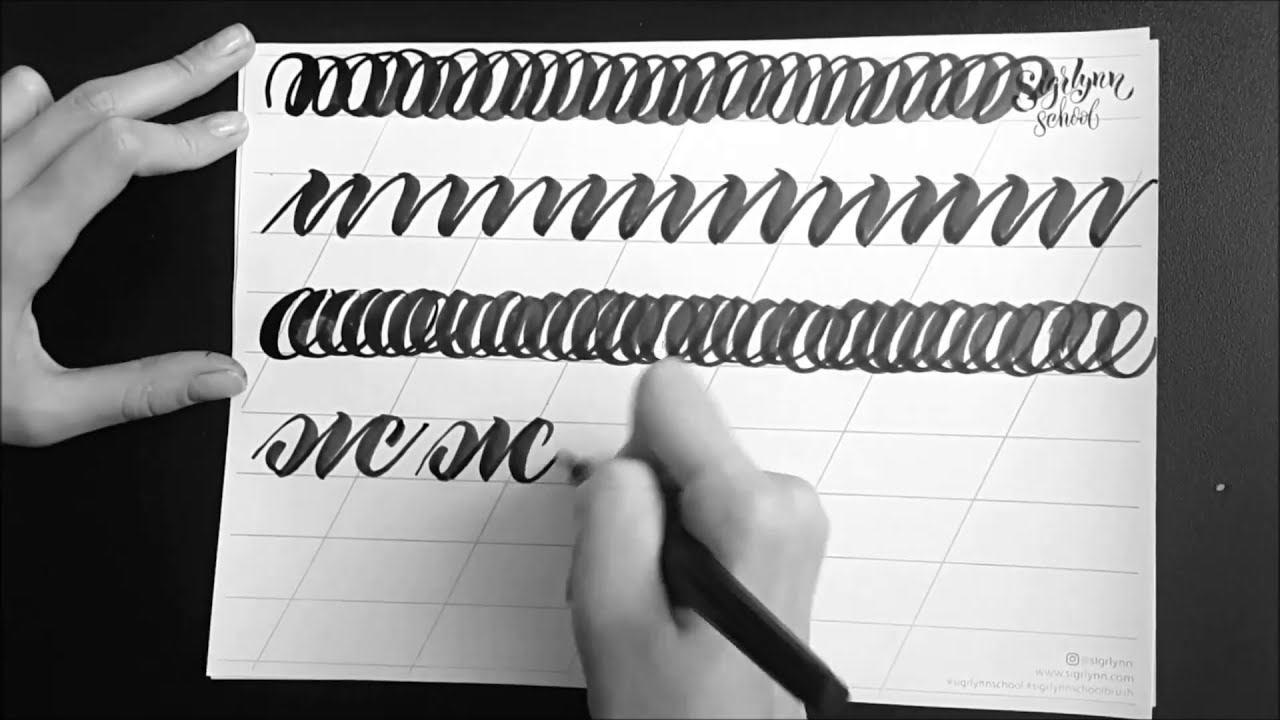 Sigrlynn
school
@sigrlynn
www.sigrlynn.com
#sigrlynnschool #sigrlynnschoolbrush